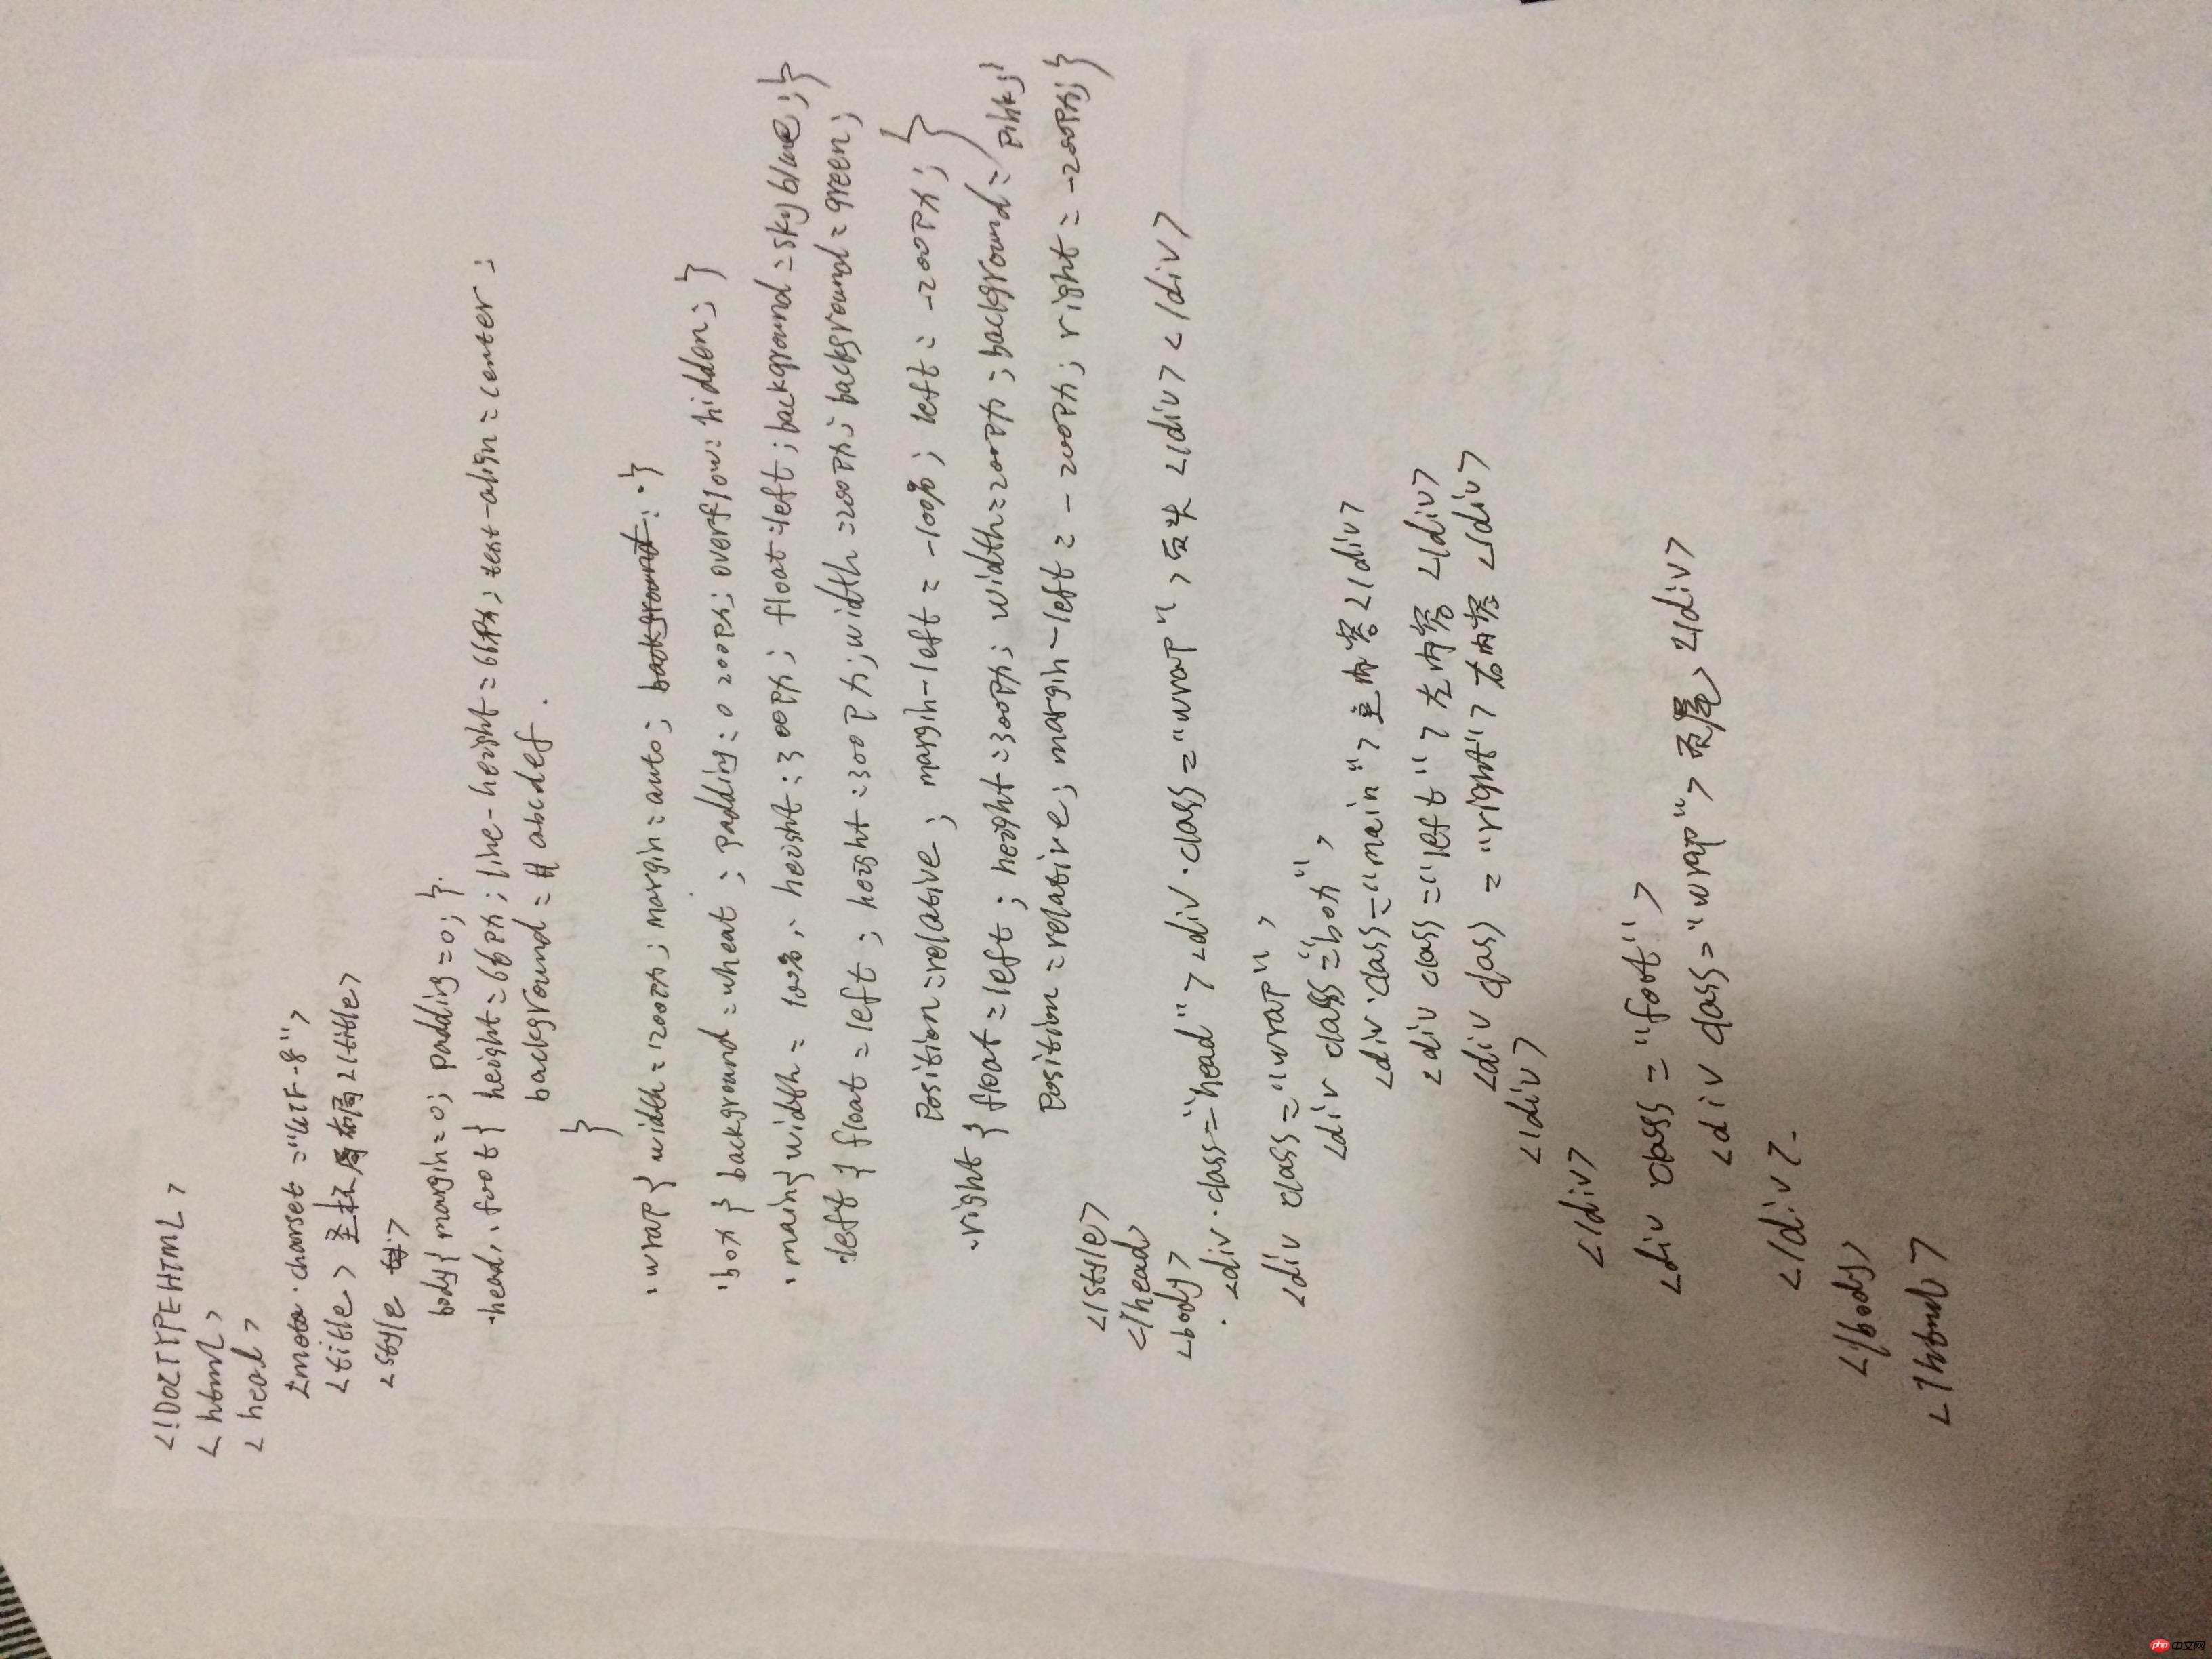 <!DOCTYPE HTML>
<html>
<head>
<meta charset="UTF-8">
<title>圣杯布局<title>
<style>
body{margin=0; padding=0; }.
.head,.foot{ height=66px; line-height=66px; text-align=center;
background=#abcdef.
}
.wrap{ width=1200px; margin=auto; background: .}
.box{ background=wheat; padding:0 200px; overflow: hidden; }
.main{width= 100%; height:300px; float:left; background=skyblue; }
.left { float=left; height=300px; width=200px; background=green;
Position=relative; margin-left=-100%; left=-200px; }
.right { float=left; height=300px; width=200px; background=pink;
Position=relative; margin-left=-200px; right=-200px; }
</style>
</head>
<body>
<div class="head"><div class="wrap">页头</div></div>
<div class="wrap">
<div class="box">
<div class="main">主内容</div>
<div class="left">左内容</div>
<div class="right">右内容</div>
</div>
</div>
<div class="foot">
<div class="wrap">页尾</div>
</div>
</body>
</html>
php 中文网